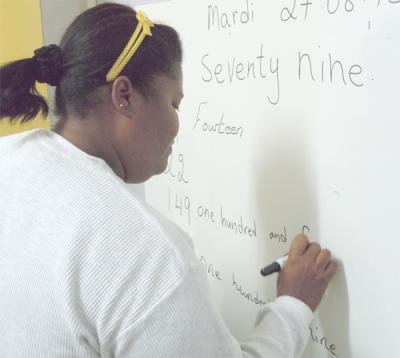 Mardi 27 08
Seventy nine
Fourteen
22
149 one hundred and f
one hundred
nine